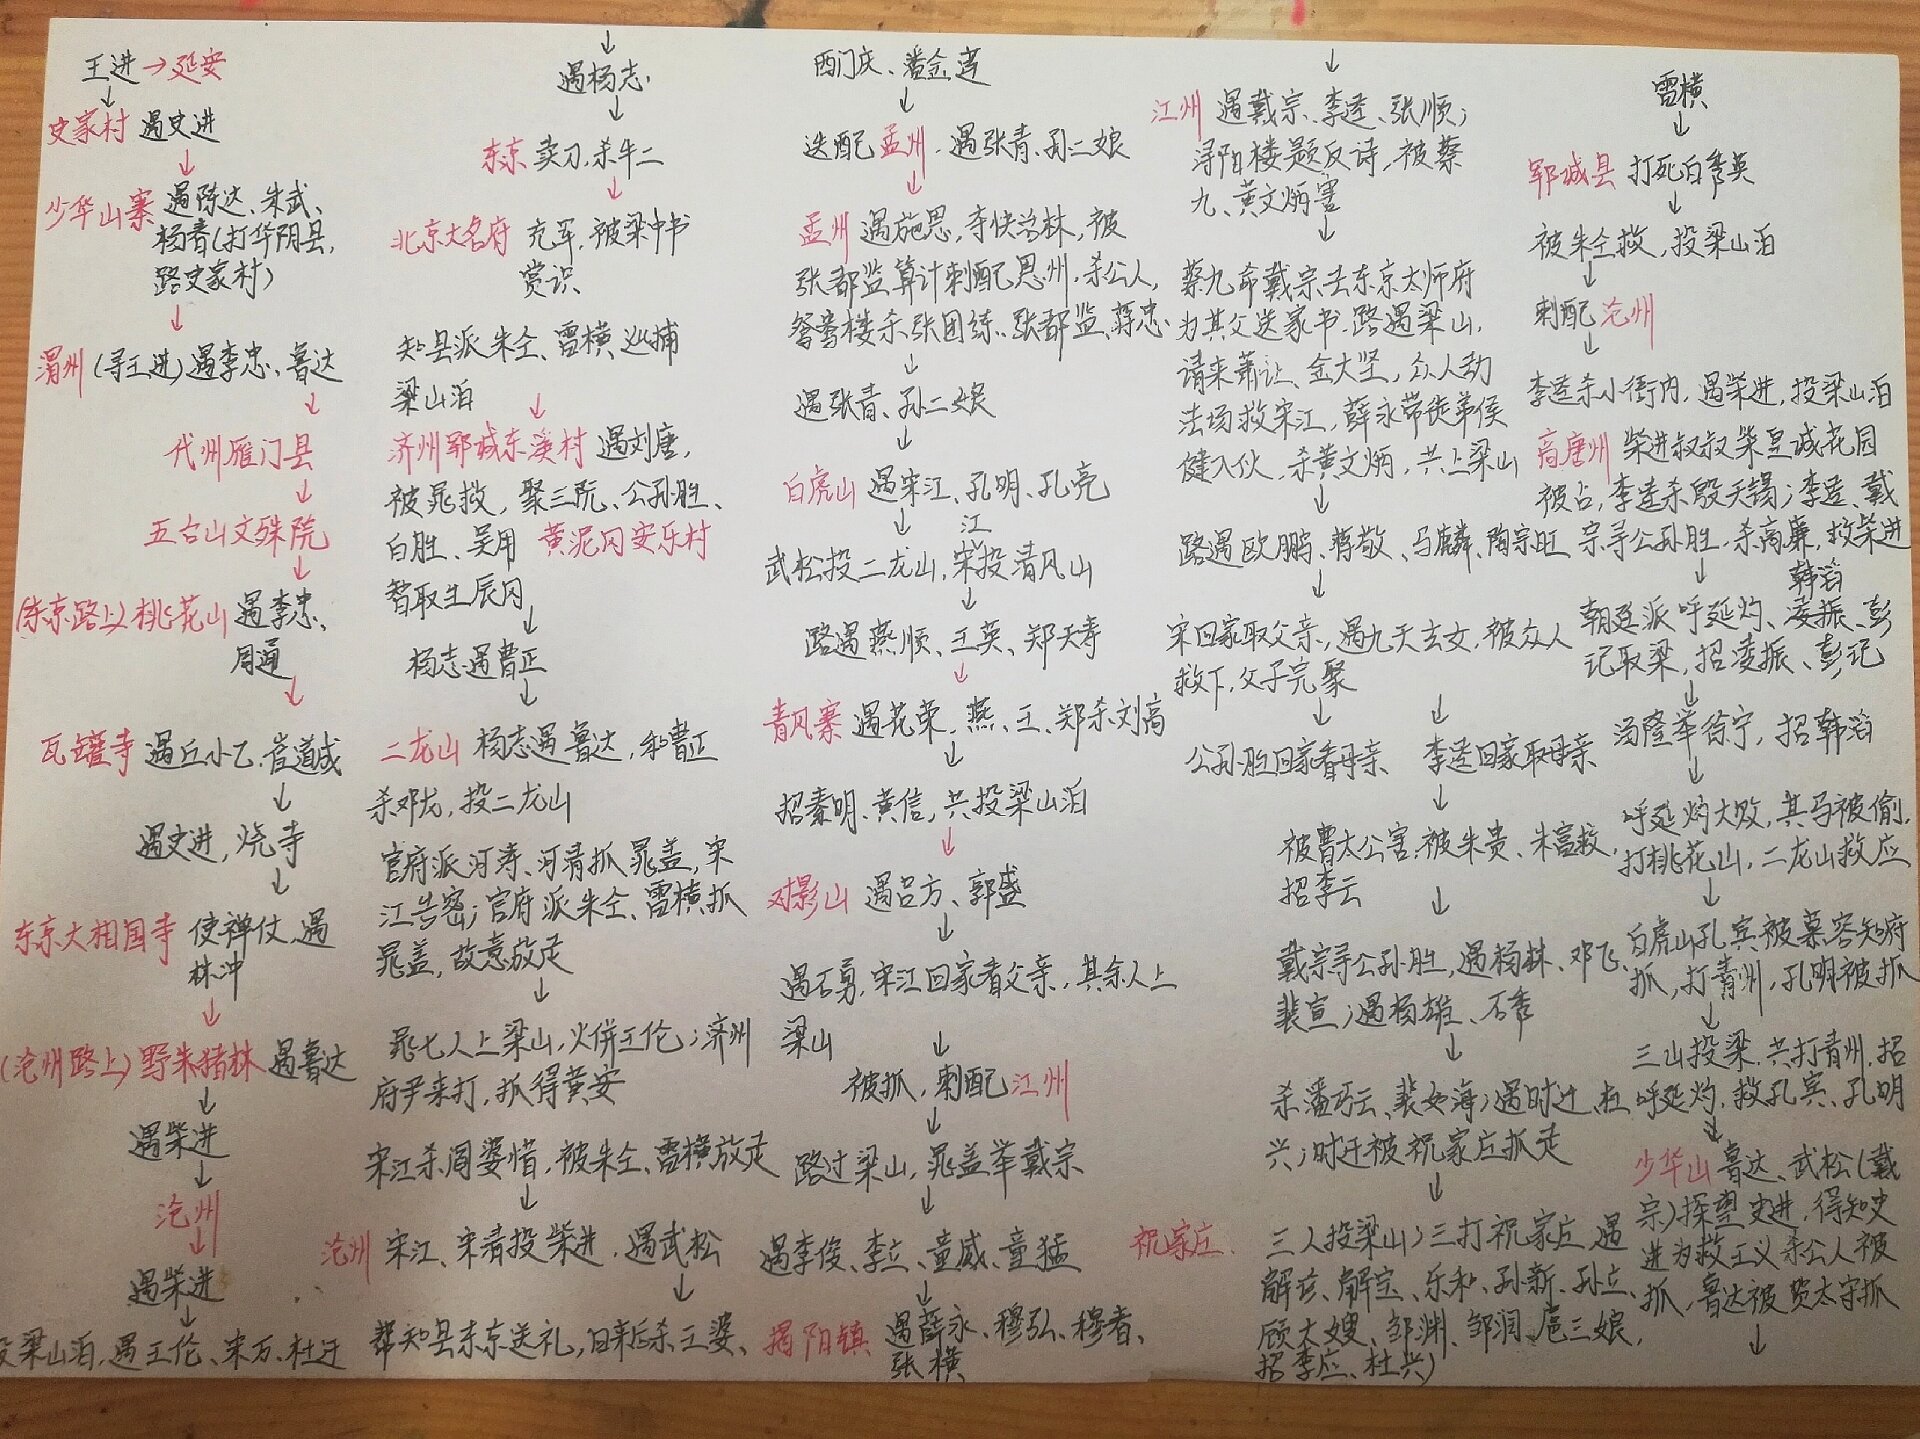 王进→延安
史家村 遇史进
少华山寨 遇陈达、朱武、
杨春(打华阴县,
路史家村)
渭州(寻王进)遇李忠、鲁达
代州雁门县
五台山文殊院
(东京路上)桃花山 遇李忠、
周通
瓦罐寺 遇丘小乙、崔道成
遇史进,烧寺
东京大相国寺 使禅仗,遇
林冲
(沧州路上)野朱猪林 遇鲁达
遇柴进
沧州
遇柴进
投梁山泊,遇王伦、宋万、杜迁
遇杨志
东京 卖刀,杀牛二
北京大名府 充军,被梁中书
赏识
知县派朱仝、雷横巡捕
梁山泊
济州郓城东溪村 遇刘唐,
被晁救,聚三阮、公孙胜、
白胜、吴用 黄泥冈安乐村
智取生辰冈
杨志遇曹正
二龙山 杨志遇鲁达,和曹正
杀邓龙,投二龙山
官府派河涛、河清抓晁盖,宋
江告密;官府派朱仝、雷横抓
晁盖,故意放走
晁七人上梁山,火併王伦;济州
府尹来打,抓得黄安
宋江杀阎婆惜,被朱仝、雷横放走
沧州 宋江、宋清投柴进,遇武松
帮知县东京送礼,日来后杀王婆、
西门庆、潘金莲
迭配孟州,遇张青、孙二娘
孟州 遇施恩,夺快活林,被
张都监算计刺配恩州,杀公人,
鸳鸯楼杀张团练、张都监、蒋忠
遇张青、孙二娘
白虎山 遇宋江、孔明、孔亮
江
武松投二龙山,宋投清风山
路遇燕顺、王英、郑天寿
青风寨 遇花荣,燕、王、郑杀刘高
招秦明、黄信,共投梁山泊
对影山 遇吕方、郭盛
遇石勇,宋江回家看父亲,其余人上
梁山
被抓,刺配江州
路过梁山,晁盖举戴宗
遇李俊、李立、童威、童猛
揭阳镇 遇薛永、穆弘、穆春、
张横
江州 遇戴宗、李逵、张顺;
浔阳楼题反诗,被蔡
九、黄文炳害
蔡九命戴宗去东京太师府
为其父送家书,路遇梁山,
请来萧让、金大坚,众人劫
法场救宋江,薛永带徒弟侯
健入伙,杀黄文炳,共上梁山
路遇欧鹏、蒋敬、马麟、陶宗旺
宋回家取父亲,遇九天玄女,被众人
救下,父子完聚
公孙胜回家看母亲 李逵回家取母亲
被曹太公害,被朱贵、朱富救,
招李云
戴宗寻公孙胜,遇杨林、邓飞、
裴宣;遇杨雄、石秀
杀潘巧云、裴如海;遇时迁、杜
兴;时迁被祝家庄抓走
祝家庄 三人投梁山;三打祝家庄,遇
解珍、解宝、乐和、孙新、孙立、
顾大嫂、邹渊、邹润、扈三娘,
招李应、杜兴)
雷横
郓城县 打死白秀英
被朱仝救,投梁山泊
刺配沧州
李逵杀小衙内,遇柴进,投梁山泊
高唐州 柴进叔叔柴皇诚花园
被占,李逵杀殷天锡;李逵、戴
宗寻公孙胜,杀高廉,救柴进
韩滔
朝廷派呼延灼、凌振、彭
玘取梁,招凌振、彭玘
汤隆举徐宁,招韩滔
呼延灼大败,其马被偷,
打桃花山,二龙山救应
白虎山孔宾被慕容知府
抓,打青州,孔明被抓
三山投梁,共打青州,招
呼延灼,救孔宾、孔明
少华山 鲁达、武松(戴
宗)探望史进,得知史
进为救王义杀公人被
抓,鲁达被贺太守抓